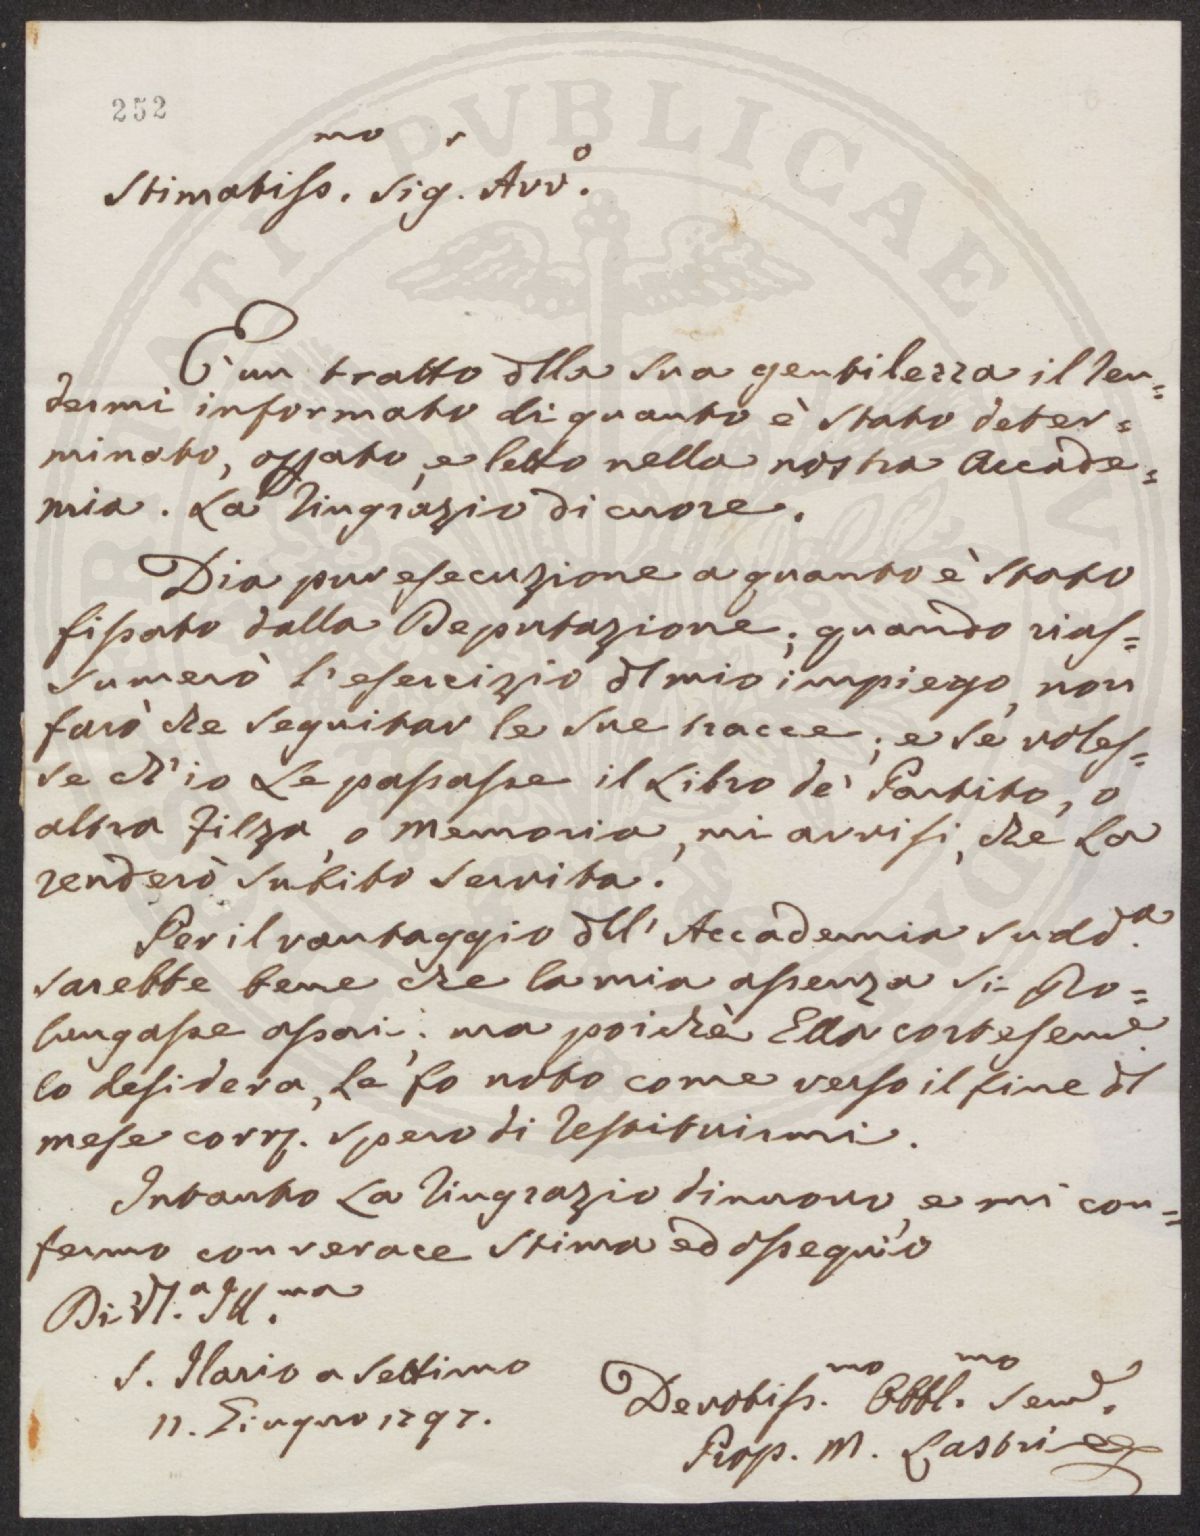 252
Stimatiss.mo Sig.r Avv.o
È un tratto dlla sua gentilezza il ren=
dermi informato di quanto è stato deter=
minato, ossato, e letto nella nostra Accade=
mia. La ringrazio di cuore.
Dia pur esecuzione a quanto è stato
fissato dalla Deputazione; quando rias=
sumerò l'esercizio dl mio impiego, non
farò che seguitar le sue tracce; e se voles=
se ch'io Le passasse il Libro de' Partito, o
altra filza, o memoria, mi avvisi, che La
renderò subito servita.
Per il vantaggio dll' Accademia sudd.a
sarebbe bene che la mia assenza si pro=
lungasse assai; ma poichè Ella cortesem.e
lo desidera, Le fo noto come verso il fine dl
mese corr. spero di restituirmi.
Intanto La ringrazio di nuovo, e mi con=
fermo con verace stima ed ossequio
Di VS.a Ill.ma
S. Ilario a Settimo
11. Giugno 1797.
Devotiss.mo Obbl.mo Serv.
Prop. M. Lastri